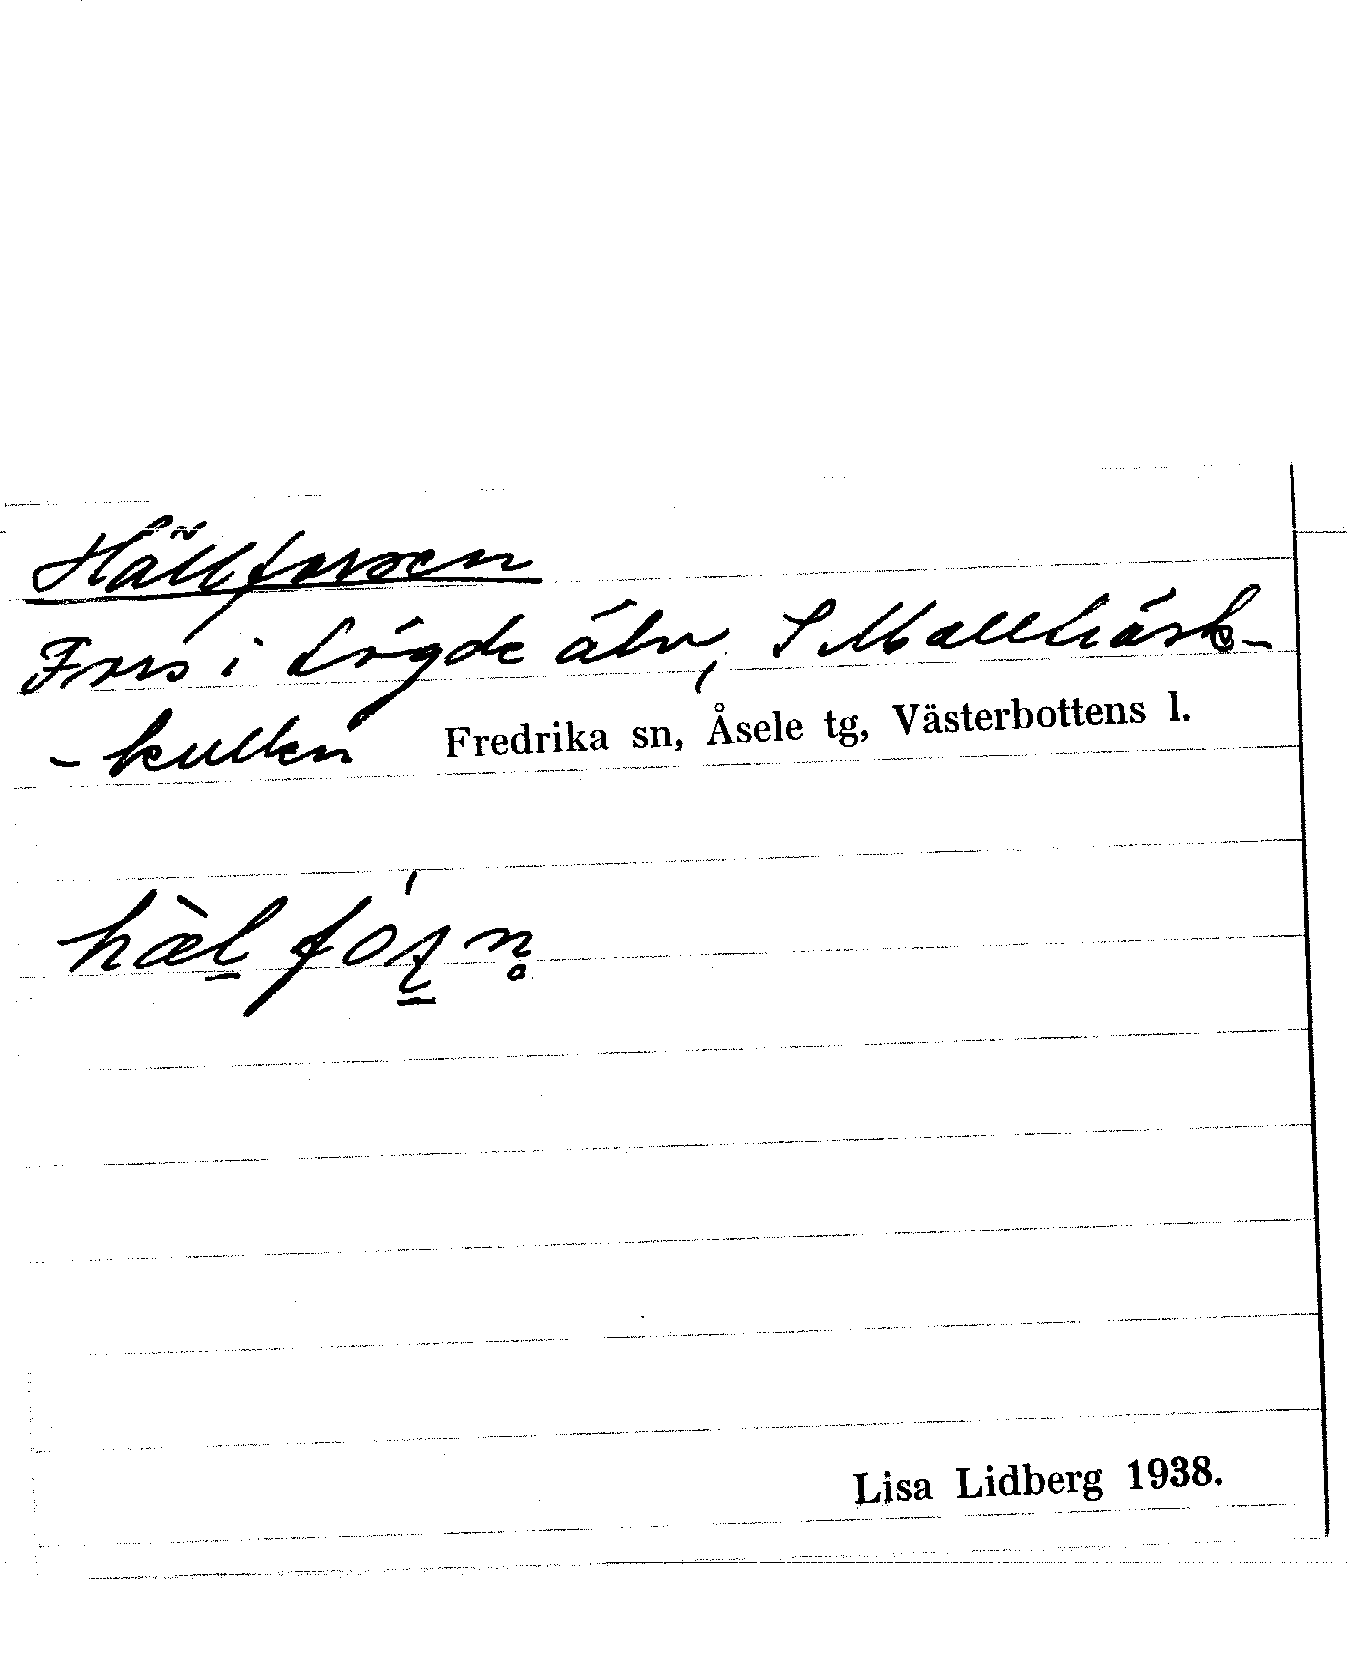 Hällforsen
Fors i Lögde älv, S Mallträsk-
-kullen Fredrika sn, Åsele tg, Västerbottens l.
Lisa Lidberg 1938.